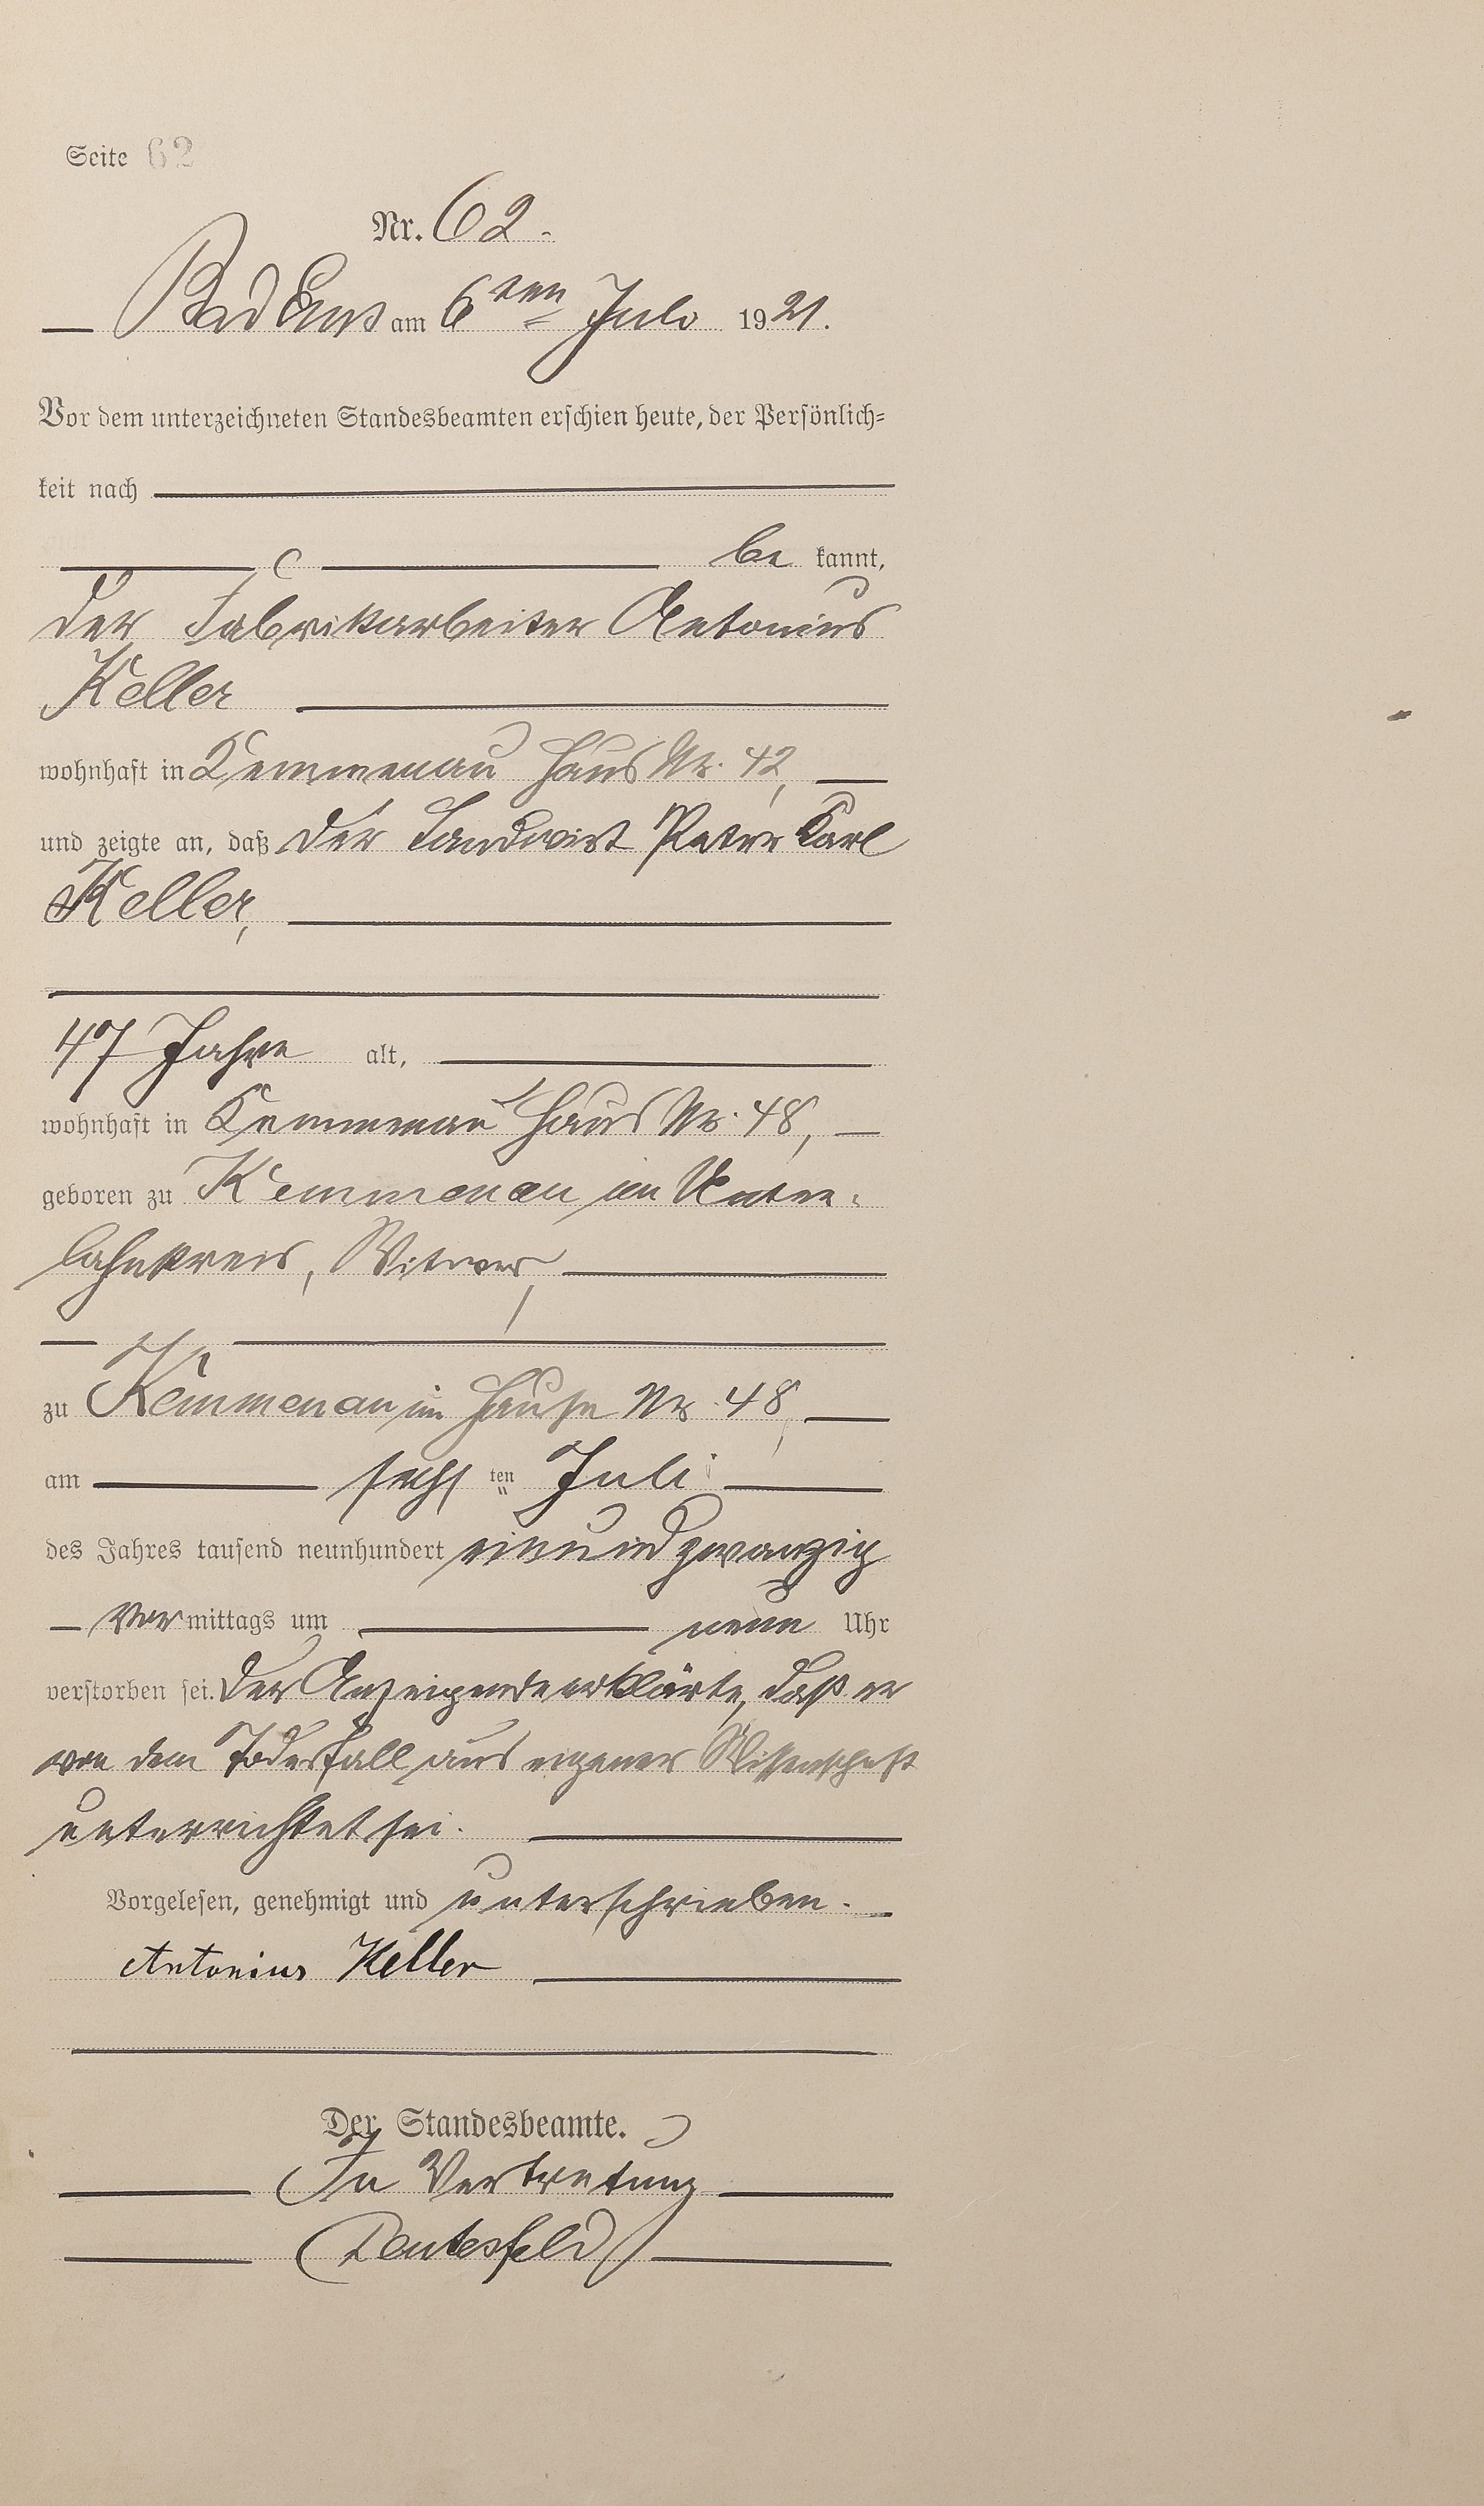 Seite 62
Nr. 62.
Bad Ems am 6ten Juli 1921.
Vor dem unterzeichneten Standesbeamten erschien heute, der Persönlich=
keit nach
be kannt,
der Fabrikarbeiter Antonius
Keller
wohnhaft in Kemmenau Haus Nr. 42,
und zeigte an, daß der Landwirt Peter Karl
Keller,
47 Jahre alt,
wohnhaft in Kemmenau Haus Nr. 48,
geboren zu Kemmenau im Unter-
lahnkreis, Witwer,
zu Kemmenau im Hause Nr. 48,
am sechsten Juli
des Jahres tausend neunhundert einundzwanzig
Vormittags um neun Uhr
verstorben sei. Der Anzeigende erklärte, daß er
von dem Todesfall aus eigener Wissenschaft
unterrichtet sei.
Vorgelesen, genehmigt und unterschrieben.
Antonius Keller
Der Standesbeamte.
In Vertretung